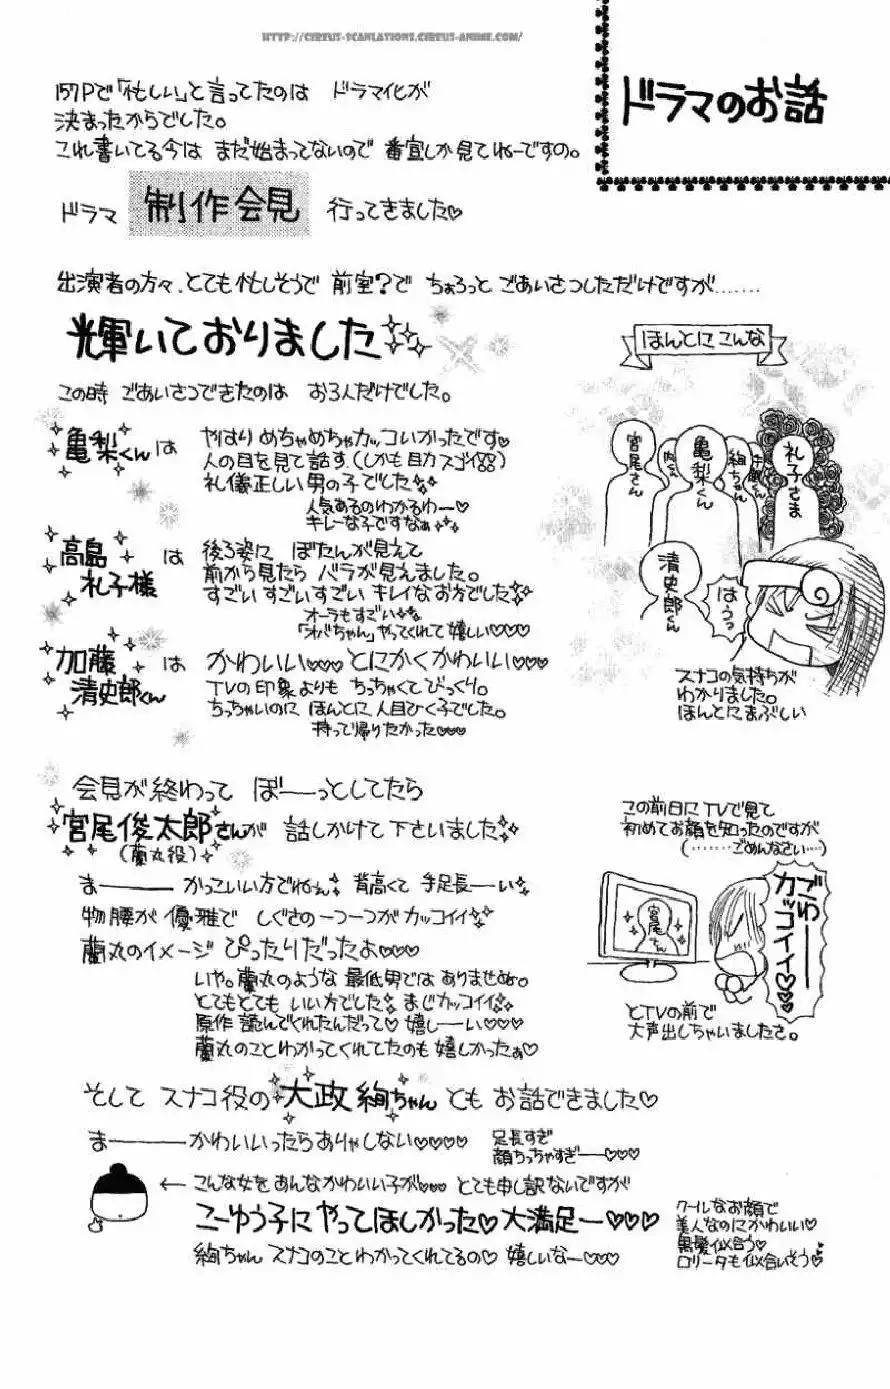 HTTP://CEREUS-SCANLATIONS.CEREUS-ANIME.COM/
ドラマのお話
157Pで「忙しい」と言ってたのは ドラマ化が
決まったからでした。
これ書いてる今は まだ始まってないので 番宣しか見てねーですの。
ドラマ 制作会見 行ってきました♡
出演者の方々、とても忙しそうで 前室?で ちょろっと ごあいさつしただけですが.......
輝いておりました
この時 ごあいさつできたのは お3人だけでした。
亀梨くんは
やはり めちゃめちゃカッコいかったです♡
人の目を見て話す。(しかも目力スゴイ)
礼儀正しい男の子でした
人気あるのわかるわー♡
キレーな子ですなぁ
高島礼子様 は
後ろ姿に ぼたんが見えて
前から見たら バラが見えました。
すごい すごい すごい キレイなお方でした
オーラもすごい
「オバちゃん」やってくれて嬉しい♡♡♡
加藤清史郎くん は
かわいい♡♡♡ とにかくかわいい♡♡♡
TVの印象よりも ちっちゃくてびっくり。
ちっちゃいのに ほんとに人目ひく子でした。
持って帰りたかった♡♡♡
ほんとに こんな
宮尾さん
内くん
亀梨くん
絢ちゃん
手越くん
礼子さま
清史郎くん
はうっ
スナコの気持ちが
わかりました。
ほんとにまぶしい
会見が終わって ぼーーっとしてたら
宮尾俊太郎さんが 話しかけて下さいました
(蘭丸役)
まーーー かっこいい方でねぇ 背高くて 手足長ーい
物腰が 優雅で しぐさの一つ一つがカッコイイ
蘭丸のイメージ ぴったりだったよ♡♡♡
いや。蘭丸のような 最低男では ありませぬ。
とてもとても いい方でした まじカッコイイ
原作 読んでくれたんだって♡ 嬉しーい♡♡♡
蘭丸のことわかってくれてたのも 嬉しかったぁ♡
この前日にTVで見て
初めてお顔を知ったのですが
(........ごめんなさい....)
宮尾さん
ごわーーー
カッコイイ♡♡♡
とTVの前で
大声出しちゃいましたさ。
そして スナコ役の 大政絢ちゃんとも お話できました♡
まーーー かわいいったらありゃしない♡♡♡♡
足長すぎ
顔ちっちゃすぎー♡♡♡
← こんな女をあんなかわいい子が♡♡♡ とても申し訳ないですが
こーゆう子に やってほしかった♡ 大満足ー♡♡♡
絢ちゃん スナコのこと わかってくれてるの♡ 嬉しいなー♡♡♡
クールなお顔で
美人なのにかわいい♡
黒髪似合う♡
ロリータも似合いそう♡